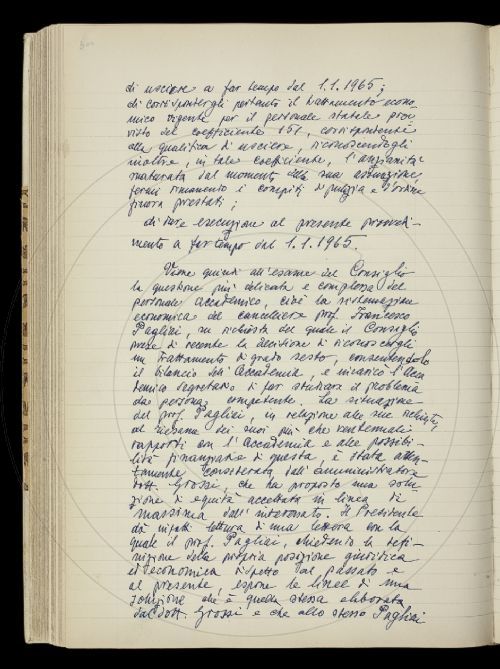 di usciere a far tempo dal 1.1.1965;
di corrispondergli pertanto il trattamento econo-
mico vigente per il personale statale prov-
visto del coefficiente 151, corrispondente
alla qualifica di usciere, riconoscendogli
inoltre, in tale coefficiente, l'anzianità
maturata dal momento della sua assunzione,
fermi rimanendo i compiti di pulizia e d'ordine
finora prestati;
di dare esecuzione al presente provvedi-
mento a far tempo dal 1.1.1965.
Viene quindi all'esame del Consiglio
la questione più delicata e complessa del
personale accademico, cioè la sistemazione
economica del cancelliere prof. Francesco
Pagliai, su richiesta del quale il Consiglio
prese di recente la decisione di riconoscergli
un trattamento di grado sesto, consentendolo
il bilancio dell'Accademia, e incaricò l'Acca-
demico Segretario di far studiare il problema
da persona competente. La situazione
del prof. Pagliai, in relazione alle sue richieste,
al riesame dei suoi più che ventennali
rapporti con l'Accademia e alle possibi-
lità finanziarie di questa, è stata atten-
tamente considerata dall'amministratore
dott. Grossi, che ha proposto una solu-
zione di equità accettata in linea di
massima dall'interessato. Il Presidente
dà infatti lettura di una lettera con la
quale il prof. Pagliai, chiedendo la defi-
nizione della propria posizione giuridica
ed economica rispetto al passato e
al presente, espone le linee di una
soluzione che è quella stessa elaborata
dal dott. Grossi e che allo stesso Pagliai